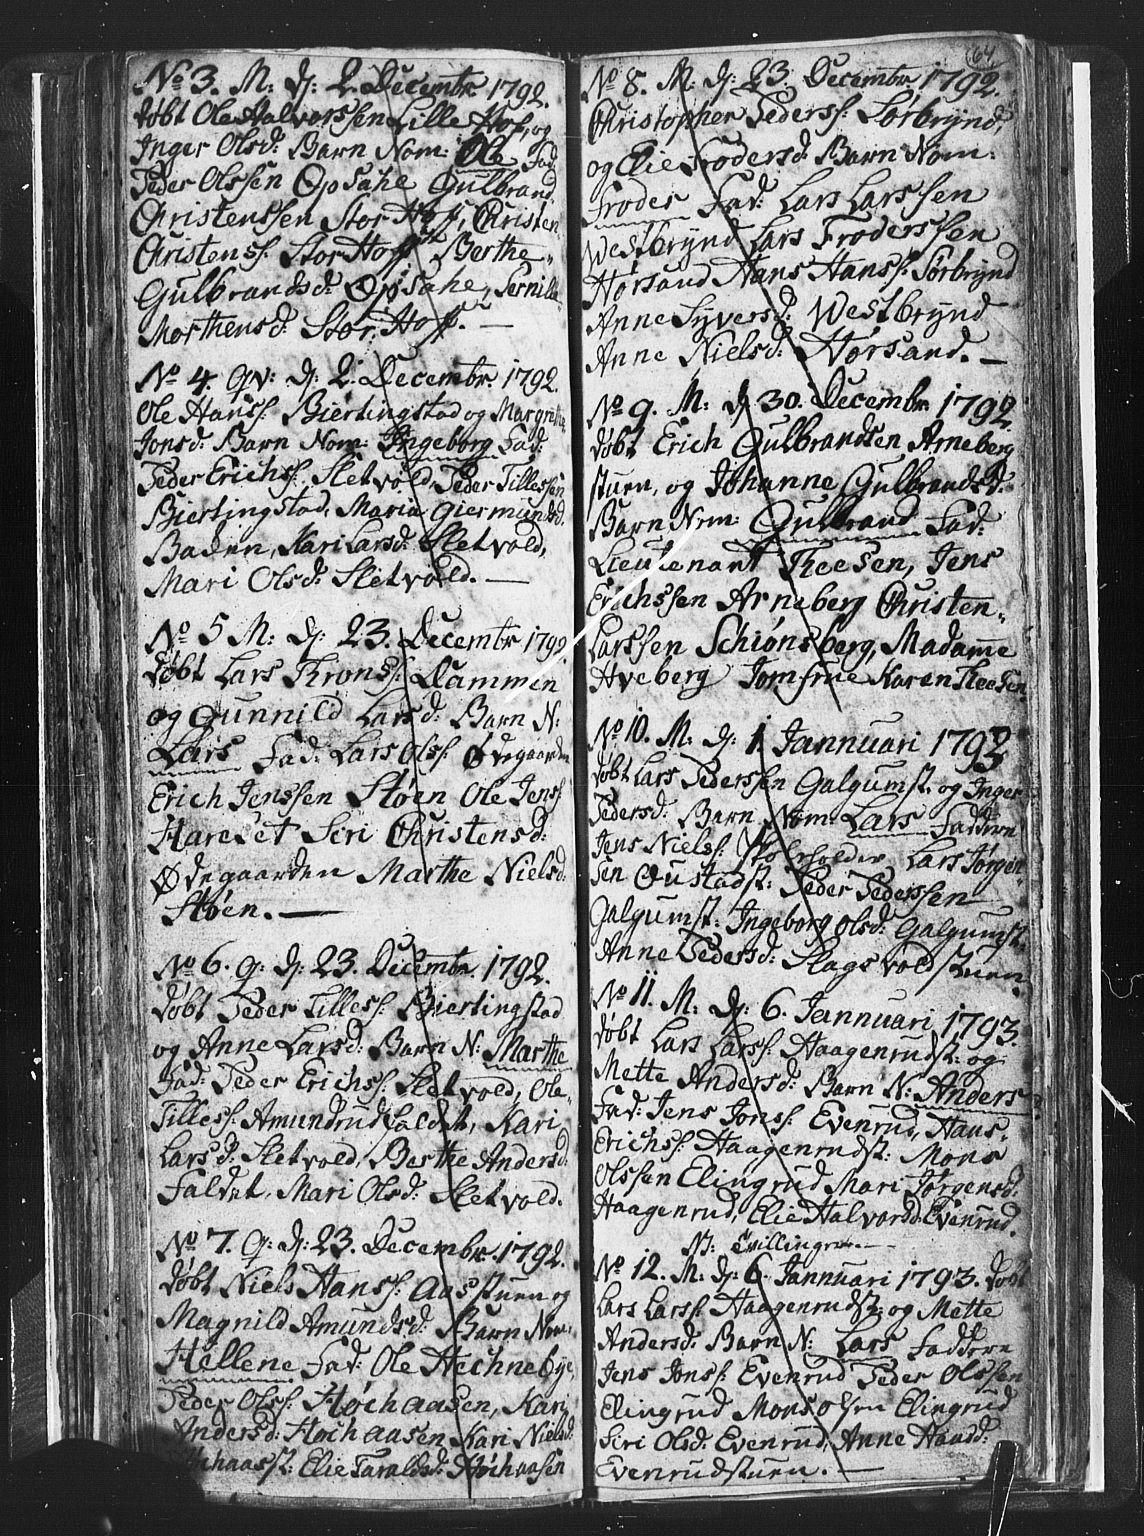 No 3. M: d: 2. Decembr. 1792.
døbt Ole Halvorssen Lille Hof, og
Inger Olsd: Barn Nom: Ole Fad:
Peder Olssen Opsahe Gulbrand
Christenssen Stor Hoff, Christen
Christensf: Stor Hoff Berthe
Gulbrandsd: Opsahe, Pernille
Morthensd: Stor Hoff. —
No 4. qv: d: 2. Decembr. 1792.
Ole Hansf: Biertingstad og Margrethe
Jonsd: Barn Nom: Ingeborg Fad:
Peder Erichsf: Sletvold, Peder Tillessen
Biertingstad, Maria Giermundsd:
Baden, Kari Larsd: Sletvold,
Mari Olsd: Sletvold. —
No 5 M: d: 23. Decembr 1792.
døbt Lars Kronsf: Dammen
og Gunnild Larsd: Barn N:
Lars Fad: Lars Olsf: Ødegaarden
Erich Jenssen Støen Ole Jensf:
Hareset Siri Christensd:
Ødegaarden Marthe Nielsd:
Støen. —
No 6. q: d: 23. Decembr. 1792.
døbt Peder Tillesf: Biertingstad
og Anne Larsd: Barn N: Marthe
Fad: Peder Erichsf: Sletvold, Ole
Tillesf: Amundrudfaldet, Kari
Larsd: Sletvold, Berthe Andersd:
Faldet, Mari Olsd: Sletvold.
No 7. q: d: 23. Decembr. 1792.
døbt Niels Hansf: Aasstuen og
Magnild Amundsd: Barn Nom:
Hellene Fad: Ole Hechnebye
Peder Olsf: Høchaasen, Kari
Andersd: Høchaasen Kari Nielsd:
Høchaasst: Elie Taraldsd: Høchaasen
64
No 8. M: d: 23. Decembr. 1792.
Christopher Pedersf: Sørbrynd,
og Elie Frodersd: Barn Nom:
Froder Fad: Lars Larssen
Westbrynd Lars Froderssen
Hørsand Hans Hansf: Sørbrynd
Anne Syversd: Westbrynd
Anne Nielsd: Hørsand. —
No 9. M: d: 30. Decembr. 1792.
døbt Erich Gulbrandsen Arneberg
stuen, og Johanne Gulbrandsd:
Barn Nom: Gulbrand Fad:
Lieutenant Theesen, Jens
Erichssen Arneberg Christen
Larssen Schiønsberg, Madame
Aveberg Jomfrue Karen Theesen
No 10. M: d: 1. Jannuari 1793
døbt Lars Pederssen Galgumst. og Inger
Pedersd: Barn Nom: Lars Faddere
Jens Nielsf: Lars Jørgen-
sen Oustadst: Peder Pederssen
Galgumst: Ingeborg Olsd: Galgumst.
Anne Pedersd: Slagsvoldstuen.
No 11. M: d: 6. Jannuari 1793.
døbt Lars Larsf: Haagenrudst: og
Mette Andersd: Barn N: Anders
Fad: Jens Jonsf: Evenrud, Hans
Erichsf: Haagenrudst: Mons
Olssen Elingrud Mari Jørgensd:
Haagenrud, Elie Halvordsd: Evenrud.
N: Tvillinger —
No 12. M: d: 6. Jannuari 1793. døbt
Lars Larsf: Haagenrudst: og Mette
Andersd: Barn N: Lars Faddere
Jens Jonsf: Evenrud Peder Olssen
Elingrud Mons Olsen Elingrud
Siri Olsd: Evenrud, Anne Haadd:
Evenrudstuen. —